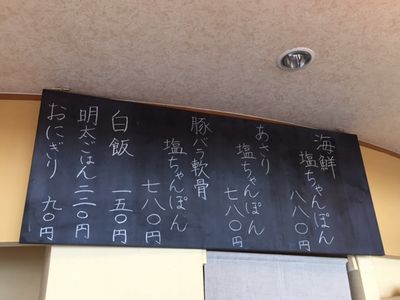 海鮮
塩ちゃんぽん
八八〇円
あさり
塩ちゃんぽん
七八〇円
豚バラ軟骨
塩ちゃんぽん
七八〇円
白飯
一五〇円
明太ごはん二二〇円
おにぎり 九〇円